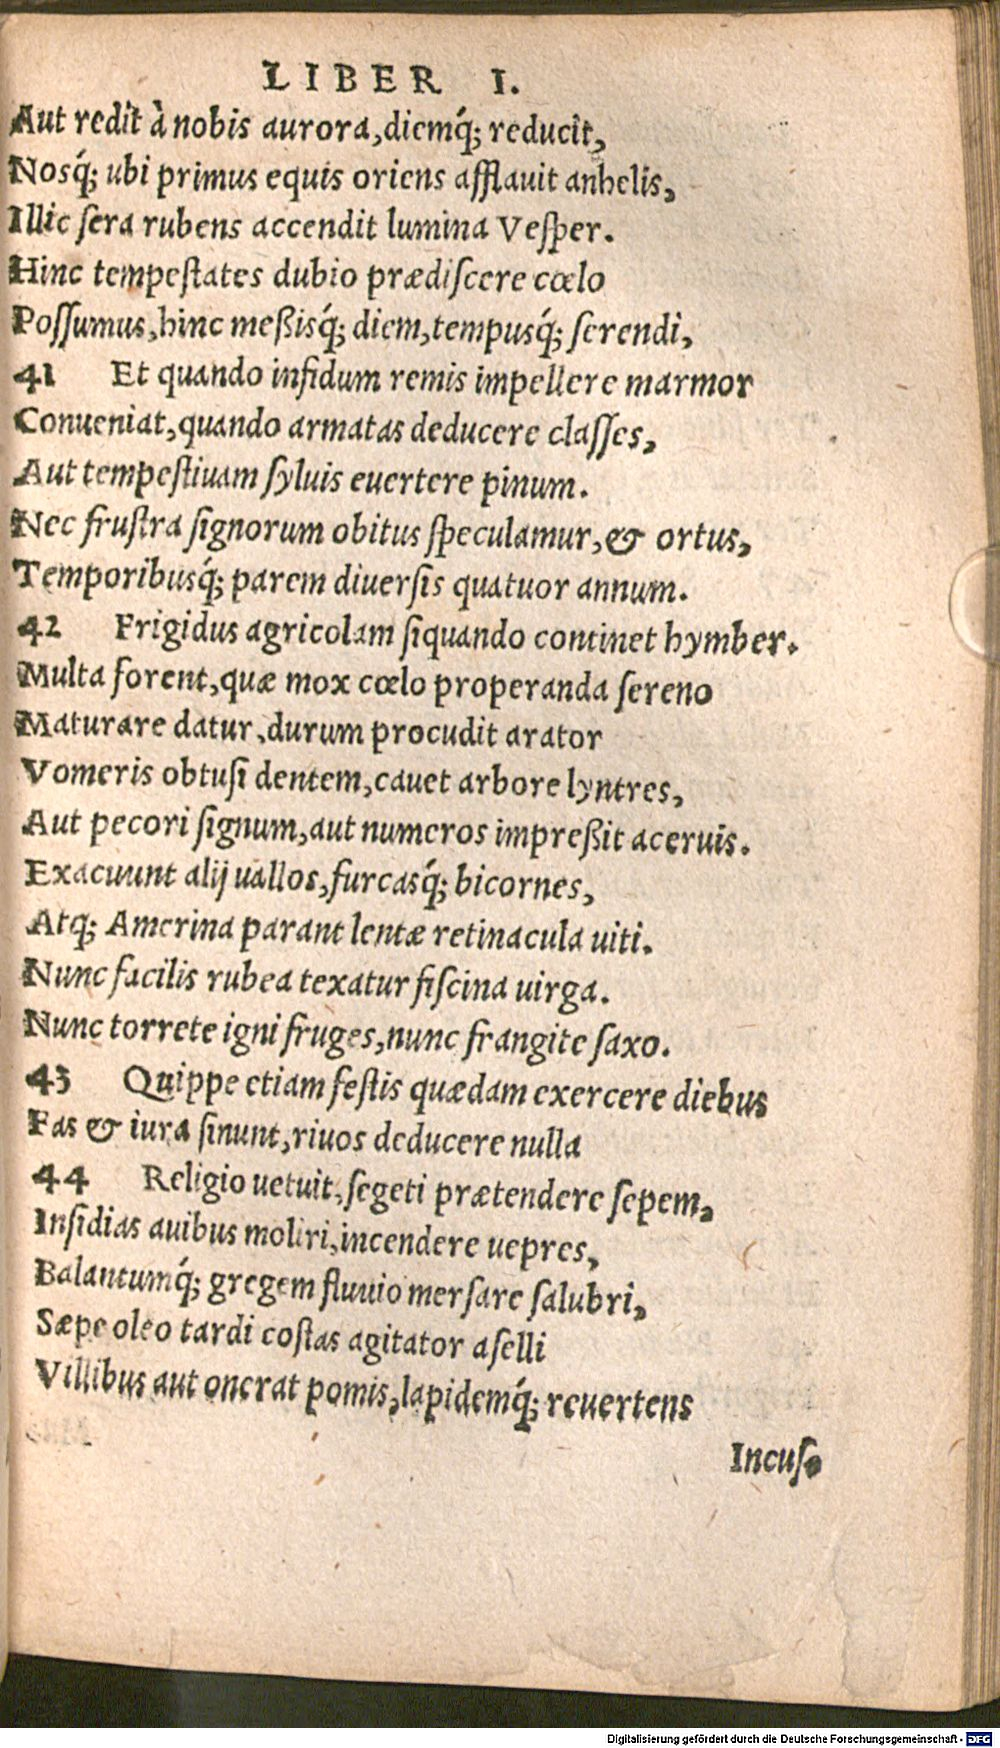 LIBER I.
Aut redit à nobis aurora, diemq́; reducit,
Nosq́; ubi primus equis oriens afflauit anhelis,
Illic ſera rubens accendit lumina Veſper.
Hinc tempeſtates dubio prædiſcere cœlo
Poſſumus, hinc meßisq́; diem, tempusq́; ſerendi,
41 Et quando infidum remis impellere marmor
Conueniat, quando armatas deducere claſſes,
Aut tempeſtiuam ſyluis euertere pinum.
Nec fruſtra ſignorum obitus ſpeculamur, & ortus,
Temporibusq́; parem diuerſis quatuor annum.
42 Frigidus agricolam ſiquando continet hymber.
Multa forent, quæ mox cœlo properanda ſereno
Maturare datur, durum procudit arator
Vomeris obtuſi dentem, cauet arbore lyntres,
Aut pecori ſignum, aut numeros impreßit aceruis.
Exacuunt alij uallos, furcasq́; bicornes,
Atq; Amerina parant lentæ retinacula uiti.
Nunc facilis rubea texatur fiſcina uirga.
Nunc torrete igni fruges, nunc frangite ſaxo.
43 Quippe etiam feſtis quædam exercere diebus
Fas & iura ſinunt, riuos deducere nulla
44 Religio uetuit, ſegeti prætendere ſepem,
Inſidias auibus moliri, incendere uepres,
Balantumq́; gregem fluuio merſare ſalubri,
Sæpe oleo tardi coſtas agitator aſelli
Villibus aut onerat pomis, lapidemq́; reuertens
Incuſ-
Digitalisierung gefördert durch die Deutsche Forschungsgemeinschaft - DFG